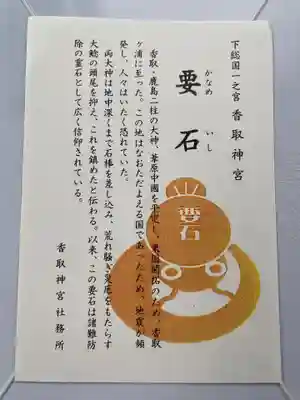 下総国一之宮 香取神宮
かなめ いし
要石
香取・鹿島二柱の大神、葦原中國を平定し、東国開拓のため、香取
ヶ浦に至った。この地はなおただよえる国であったため、地震が頻
発し、人々はいたく恐れていた。
両大神は地中深くまで石棒を差し込み、荒れ騒ぎ災厄をもたらす
大鯰の頭尾を抑え、これを鎮めたと伝わる。以来、この要石は諸難防
除の霊石として広く信仰されている。
香取神宮社務所
要石